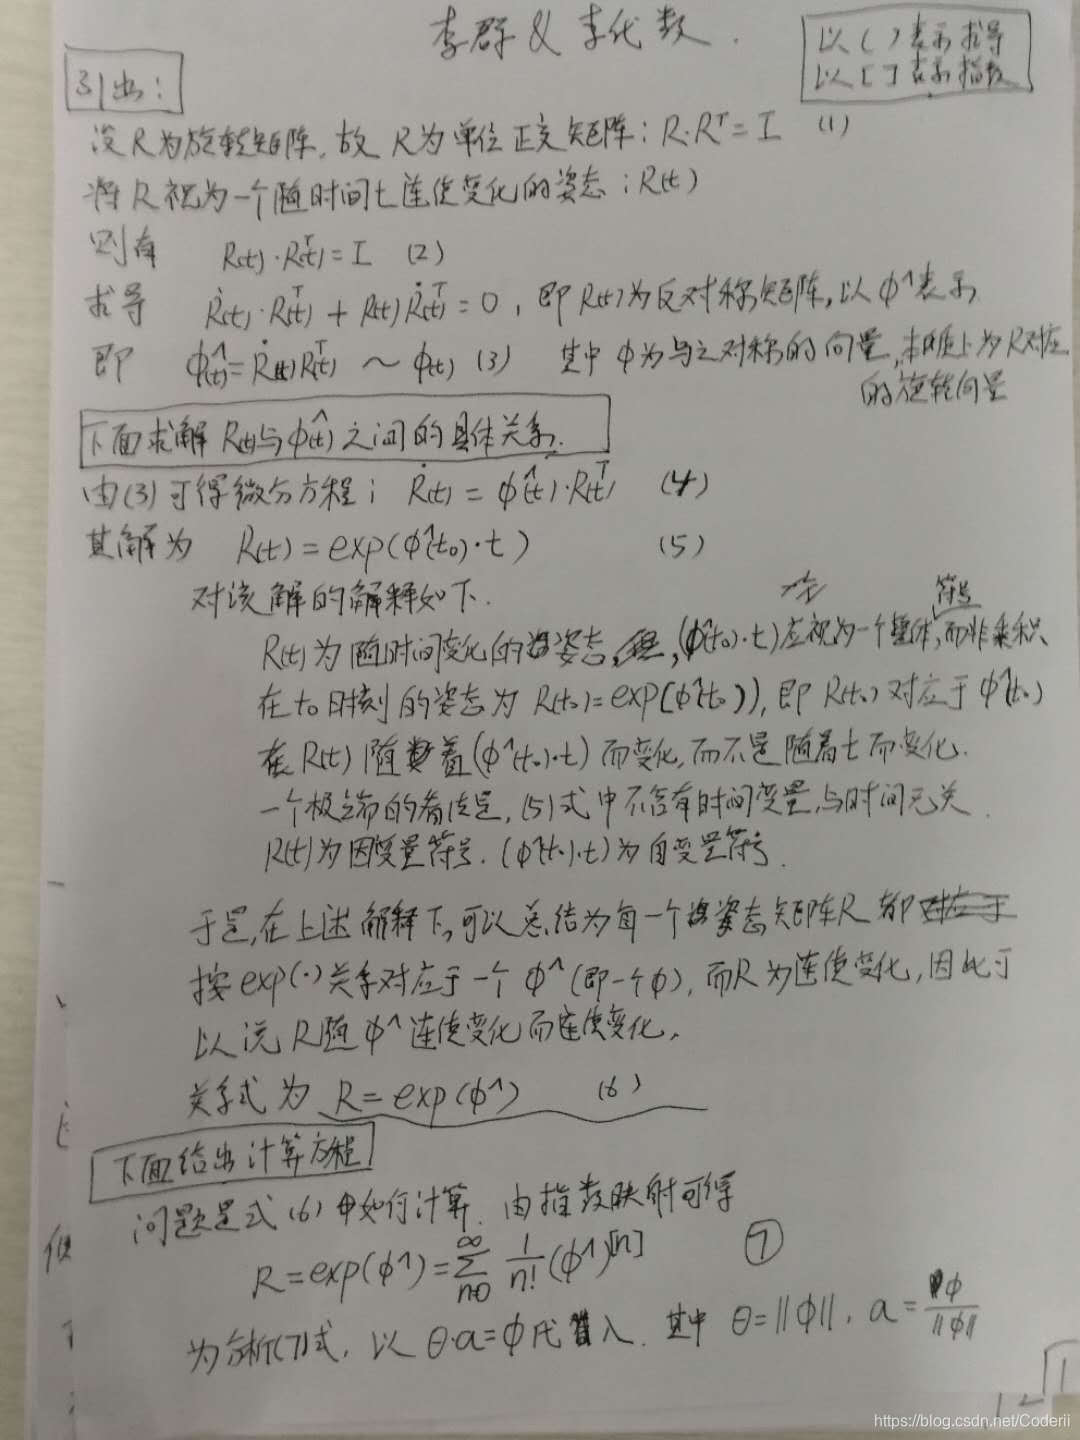 李群 & 李代数.
以( )表示求导
以[ ]表示指数
引出:
设R为旋转矩阵,故 R为单位正交矩阵: R·Rᵀ = I (1)
将R视为一个随时间t连续变化的姿态:R(t)
则有 R(t)·R(t)ᵀ = I (2)
求导 Ṙ(t)·R(t)ᵀ + R(t)Ṙ(t)ᵀ = 0, 即R(t)为反对称矩阵,以φ^表示
即 φ(t)^ = Ṙ(t)R(t)ᵀ ~ φ(t) (3) 其中φ为与之对称的向量,本质上为R对应
的旋转向量
下面求解 R(t)与φ(t)^ 之间的具体关系.
由(3)可得微分方程: Ṙ(t) = φ^(t)·R(t)ᵀ (4)
其解为 R(t) = exp(φ^(t₀)·t) (5)
对该解的解释如下.
符号
R(t)为随时间变化的姿态, (φ^(t₀)·t)应视为一个整体,而非乘积
在t₀时刻的姿态为 R(t₀)=exp(φ^(t₀)), 即 R(t₀)对应于φ^(t₀)
R(t)随着(φ^(t₀)·t)而变化,而不是随着t而变化.
一个极端的看法是,(5)式中不含有时间变量,与时间无关.
R(t)为因变量符号. (φ^(t₀)·t)为自变量符号.
于是,在上述解释下,可以总结为每一个姿态矩阵R都
按exp(·)关系对应于一个φ^(即一个φ),而R为连续变化,因此可
以说R随φ^连续变化而连续变化.
关系式为 R = exp(φ^) (6)
下面给出计算方程
问题是式(6)中如何计算. 由指数映射可得
R = exp(φ^) = ∑_{n=0}^{∞} 1/n! (φ^)^[n] ⑦
为分析(7)式, 以 θ·a=φ代入. 其中 θ=||φ||, a = φ/||φ||
1
https://blog.csdn.net/Coderii